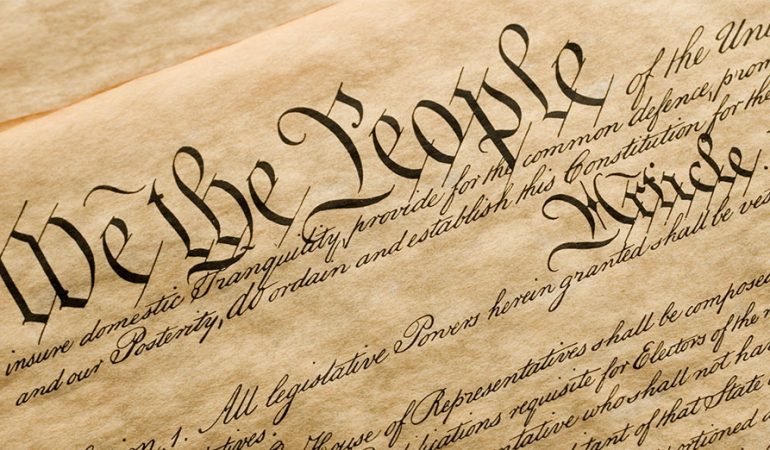 We the People of the Uni
insure domestic Tranquility, provide for the common defence, prom
and our Posterity, do ordain and establish this Constitution for the
Article .
ion. 1. All legislative Powers herein granted shall be ves
tives.
House of Representatives shall be composed
ications requisite for Electors of the
ntative who shall not ha
itant of that State
ortioned